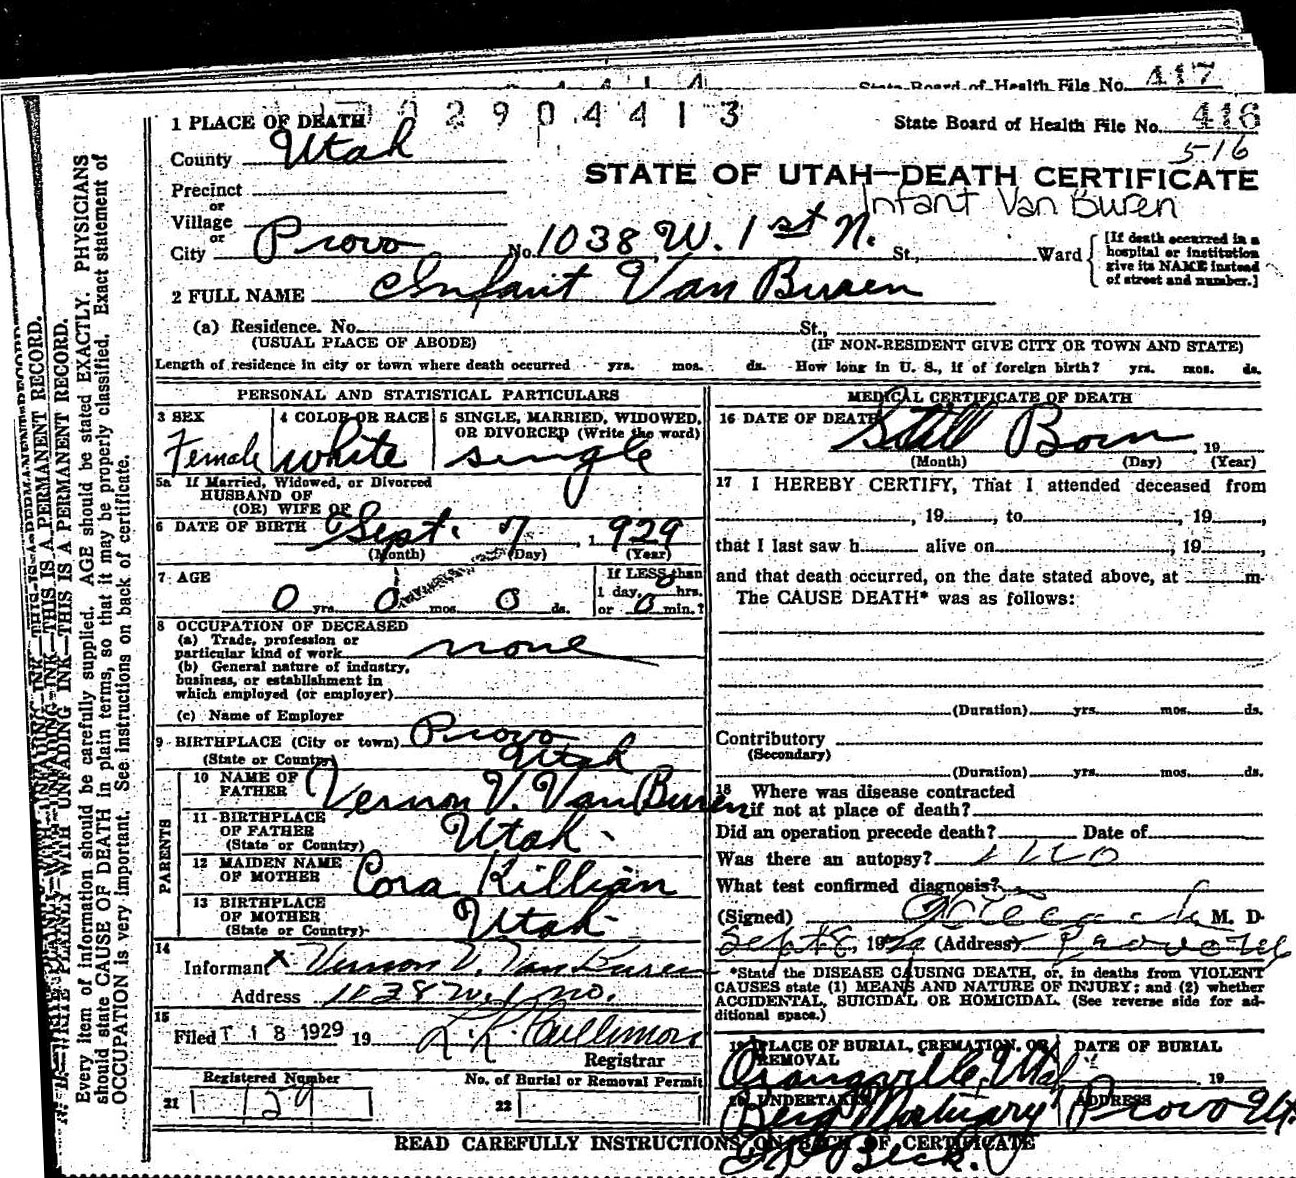 State Board of Health File No. 417
2904413
State Board of Health File No. 416
516
1 PLACE OF DEATH
County Utah
STATE OF UTAH—DEATH CERTIFICATE
Infant Van Buren
Precinct
or
Village
or
City Provo No. 1038 W. 1st N. St., Ward
[If death occurred in a
hospital or institution
give its NAME instead
of street and number.]
2 FULL NAME Infant Van Buren
(a) Residence. No. St.,
(USUAL PLACE OF ABODE) (IF NON-RESIDENT GIVE CITY OR TOWN AND STATE)
Length of residence in city or town where death occurred yrs. mos. ds. How long in U. S., if of foreign birth? yrs. mos. ds.
PERSONAL AND STATISTICAL PARTICULARS
3 SEX
Female
4 COLOR OR RACE
white
5 SINGLE, MARRIED, WIDOWED,
OR DIVORCED (Write the word)
single
5a If Married, Widowed, or Divorced
HUSBAND OF
(OR) WIFE OF
6 DATE OF BIRTH Sept. 7, 1929
(Month) (Day) (Year)
7 AGE
0 yrs. 0 mos. 0 ds.
If LESS than
1 day, hrs.
or 0 min.?
8 OCCUPATION OF DECEASED
(a) Trade, profession or
particular kind of work none
(b) General nature of industry,
business, or establishment in
which employed (or employer)
(c) Name of Employer
9 BIRTHPLACE (City or town) Provo
(State or Country) Utah
PARENTS
10 NAME OF
FATHER Vernon V. Van Buren
11 BIRTHPLACE
OF FATHER
(State or Country) Utah
12 MAIDEN NAME
OF MOTHER Cora Killian
13 BIRTHPLACE
OF MOTHER
(State or Country) Utah
14
Informant x Vernon V. Van Buren
Address 1038 W. 1 no.
15
Filed T 18 1929 19
Registrar
Registered Number
21 129
No. of Burial or Removal Permit
22
MEDICAL CERTIFICATE OF DEATH
16 DATE OF DEATH Still Born, 19
(Month) (Day) (Year)
17 I HEREBY CERTIFY, That I attended deceased from
, 19 , to , 19 ,
that I last saw h alive on , 19 ,
and that death occurred, on the date stated above, at m.
The CAUSE DEATH* was as follows:
(Duration) yrs. mos. ds.
Contributory
(Secondary)
(Duration) yrs. mos. ds.
18 Where was disease contracted
if not at place of death?
Did an operation precede death? Date of
Was there an autopsy? no
What test confirmed diagnosis?
(Signed) M. D.
Sept 8, 1929 (Address)
*State the DISEASE CAUSING DEATH, or, in deaths from VIOLENT
CAUSES state (1) MEANS AND NATURE OF INJURY; and (2) whether
ACCIDENTAL, SUICIDAL OR HOMICIDAL. (See reverse side for ad-
ditional space.)
19 PLACE OF BURIAL, CREMATION, OR
REMOVAL
Orangeville, Utah
DATE OF BURIAL
19
20 UNDERTAKER
Berg Mortuary
Beck.
ADDRESS
Provo Ut.
READ CAREFULLY INSTRUCTIONS ON BACK OF CERTIFICATE
WRITE PLAINLY WITH UNFADING INK—THIS IS A PERMANENT RECORD.
Every item of information should be carefully supplied. AGE should be stated EXACTLY. PHYSICIANS
should state CAUSE OF DEATH in plain terms, so that it may be properly classified. Exact statement of
OCCUPATION is very important. See instructions on back of certificate.